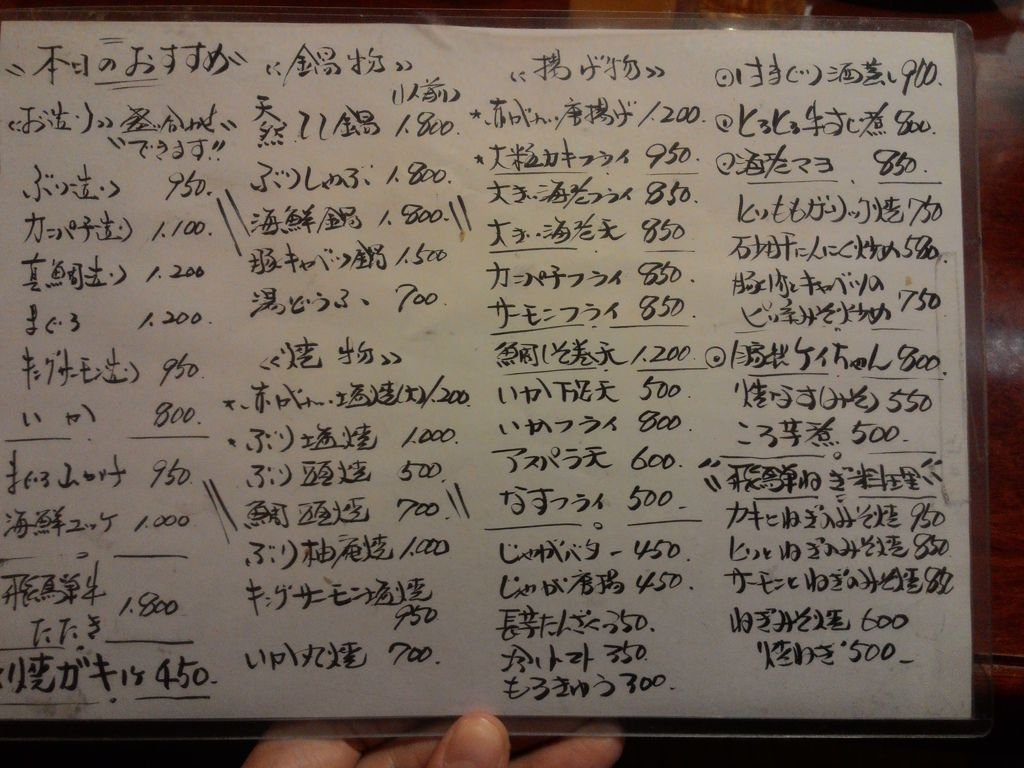 本日のおすすめ
お造り 盛り合わせ
できます!!
ぶり造り 950.
カンパチ造り 1.100.
真鯛造り 1.200
まぐろ 1.200.
キングサーモン造り 950.
いか 800.
まぐろ山かけ 950
海鮮ユッケ 1.000
飛騨牛
たたき 1.800
焼ガキ1ケ 450.
鍋物
(1人前)
天然 鍋 1.800.
ぶりしゃぶ 1.800.
海鮮鍋 1.800
豚キャベツ鍋 1.500
湯どうふ 700
焼物
赤がれい塩焼(大) 1.200.
ぶり塩焼 1.000
ぶり頭焼 500
鯛頭焼 700
ぶり柚庵焼 1.000
キングサーモン塩焼
950
いか丸焼 700.
揚げ物
赤がれい唐揚げ 1.200.
大粒カキフライ 950.
大きい海老フライ 850.
大きい海老天 850
カンパチフライ 850.
サーモンフライ 850.
鯛しそ巻天 1.200
いか下足天 500
いかフライ 800
アスパラ天 600.
なすフライ 500.
じゃがバター 450.
じゃが唐揚 450.
長芋たんざく 350.
冷しトマト 350.
もろきゅう 300.
はまぐり酒蒸し 900.
とろとろ牛すじ煮 800.
海老マヨ 850.
とりももガーリック焼 750
砂肝にんにく炒め 580
豚肉とキャベツの
ピリ辛みそ炒め 750
自家製ケイちゃん 800
焼なす(みそ) 550
ころ芋煮 500.
飛騨ねぎ料理
カキとねぎのみそ焼 950
とりとねぎのみそ焼 850
サーモンとねぎのみそ焼 850
ねぎみそ焼 600
焼ねぎ 500